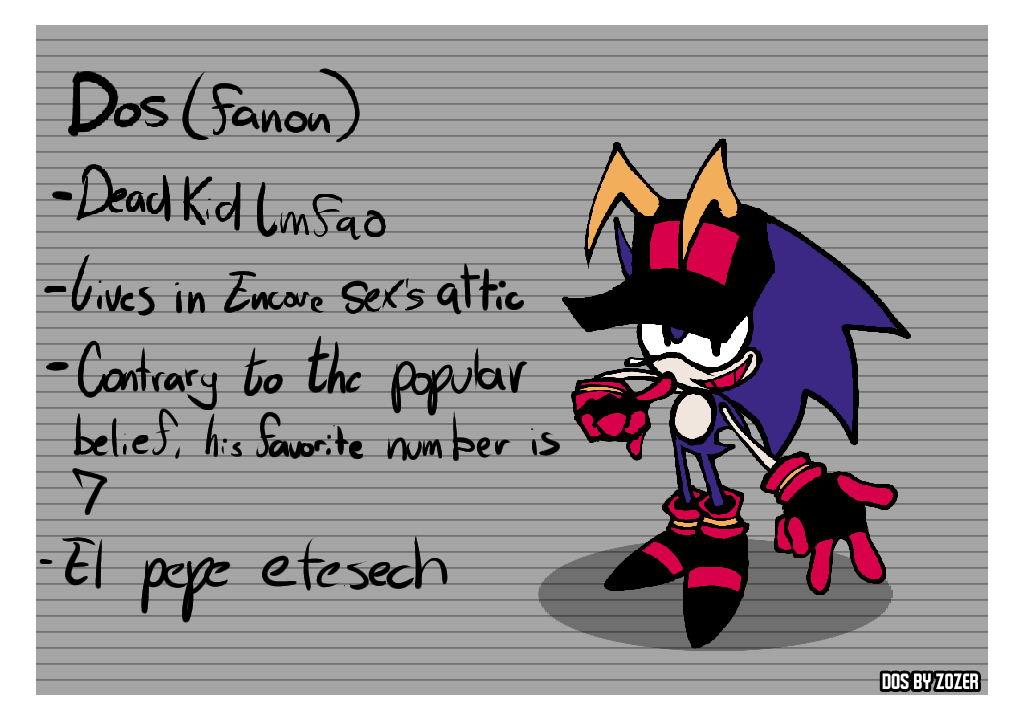 Dos (fanon)
- Dead Kid lmfao
- Lives in Encore sex's attic
- Contrary to the popular
belief, his favorite number is
7
- El pepe etesech
DOS BY ZOZER